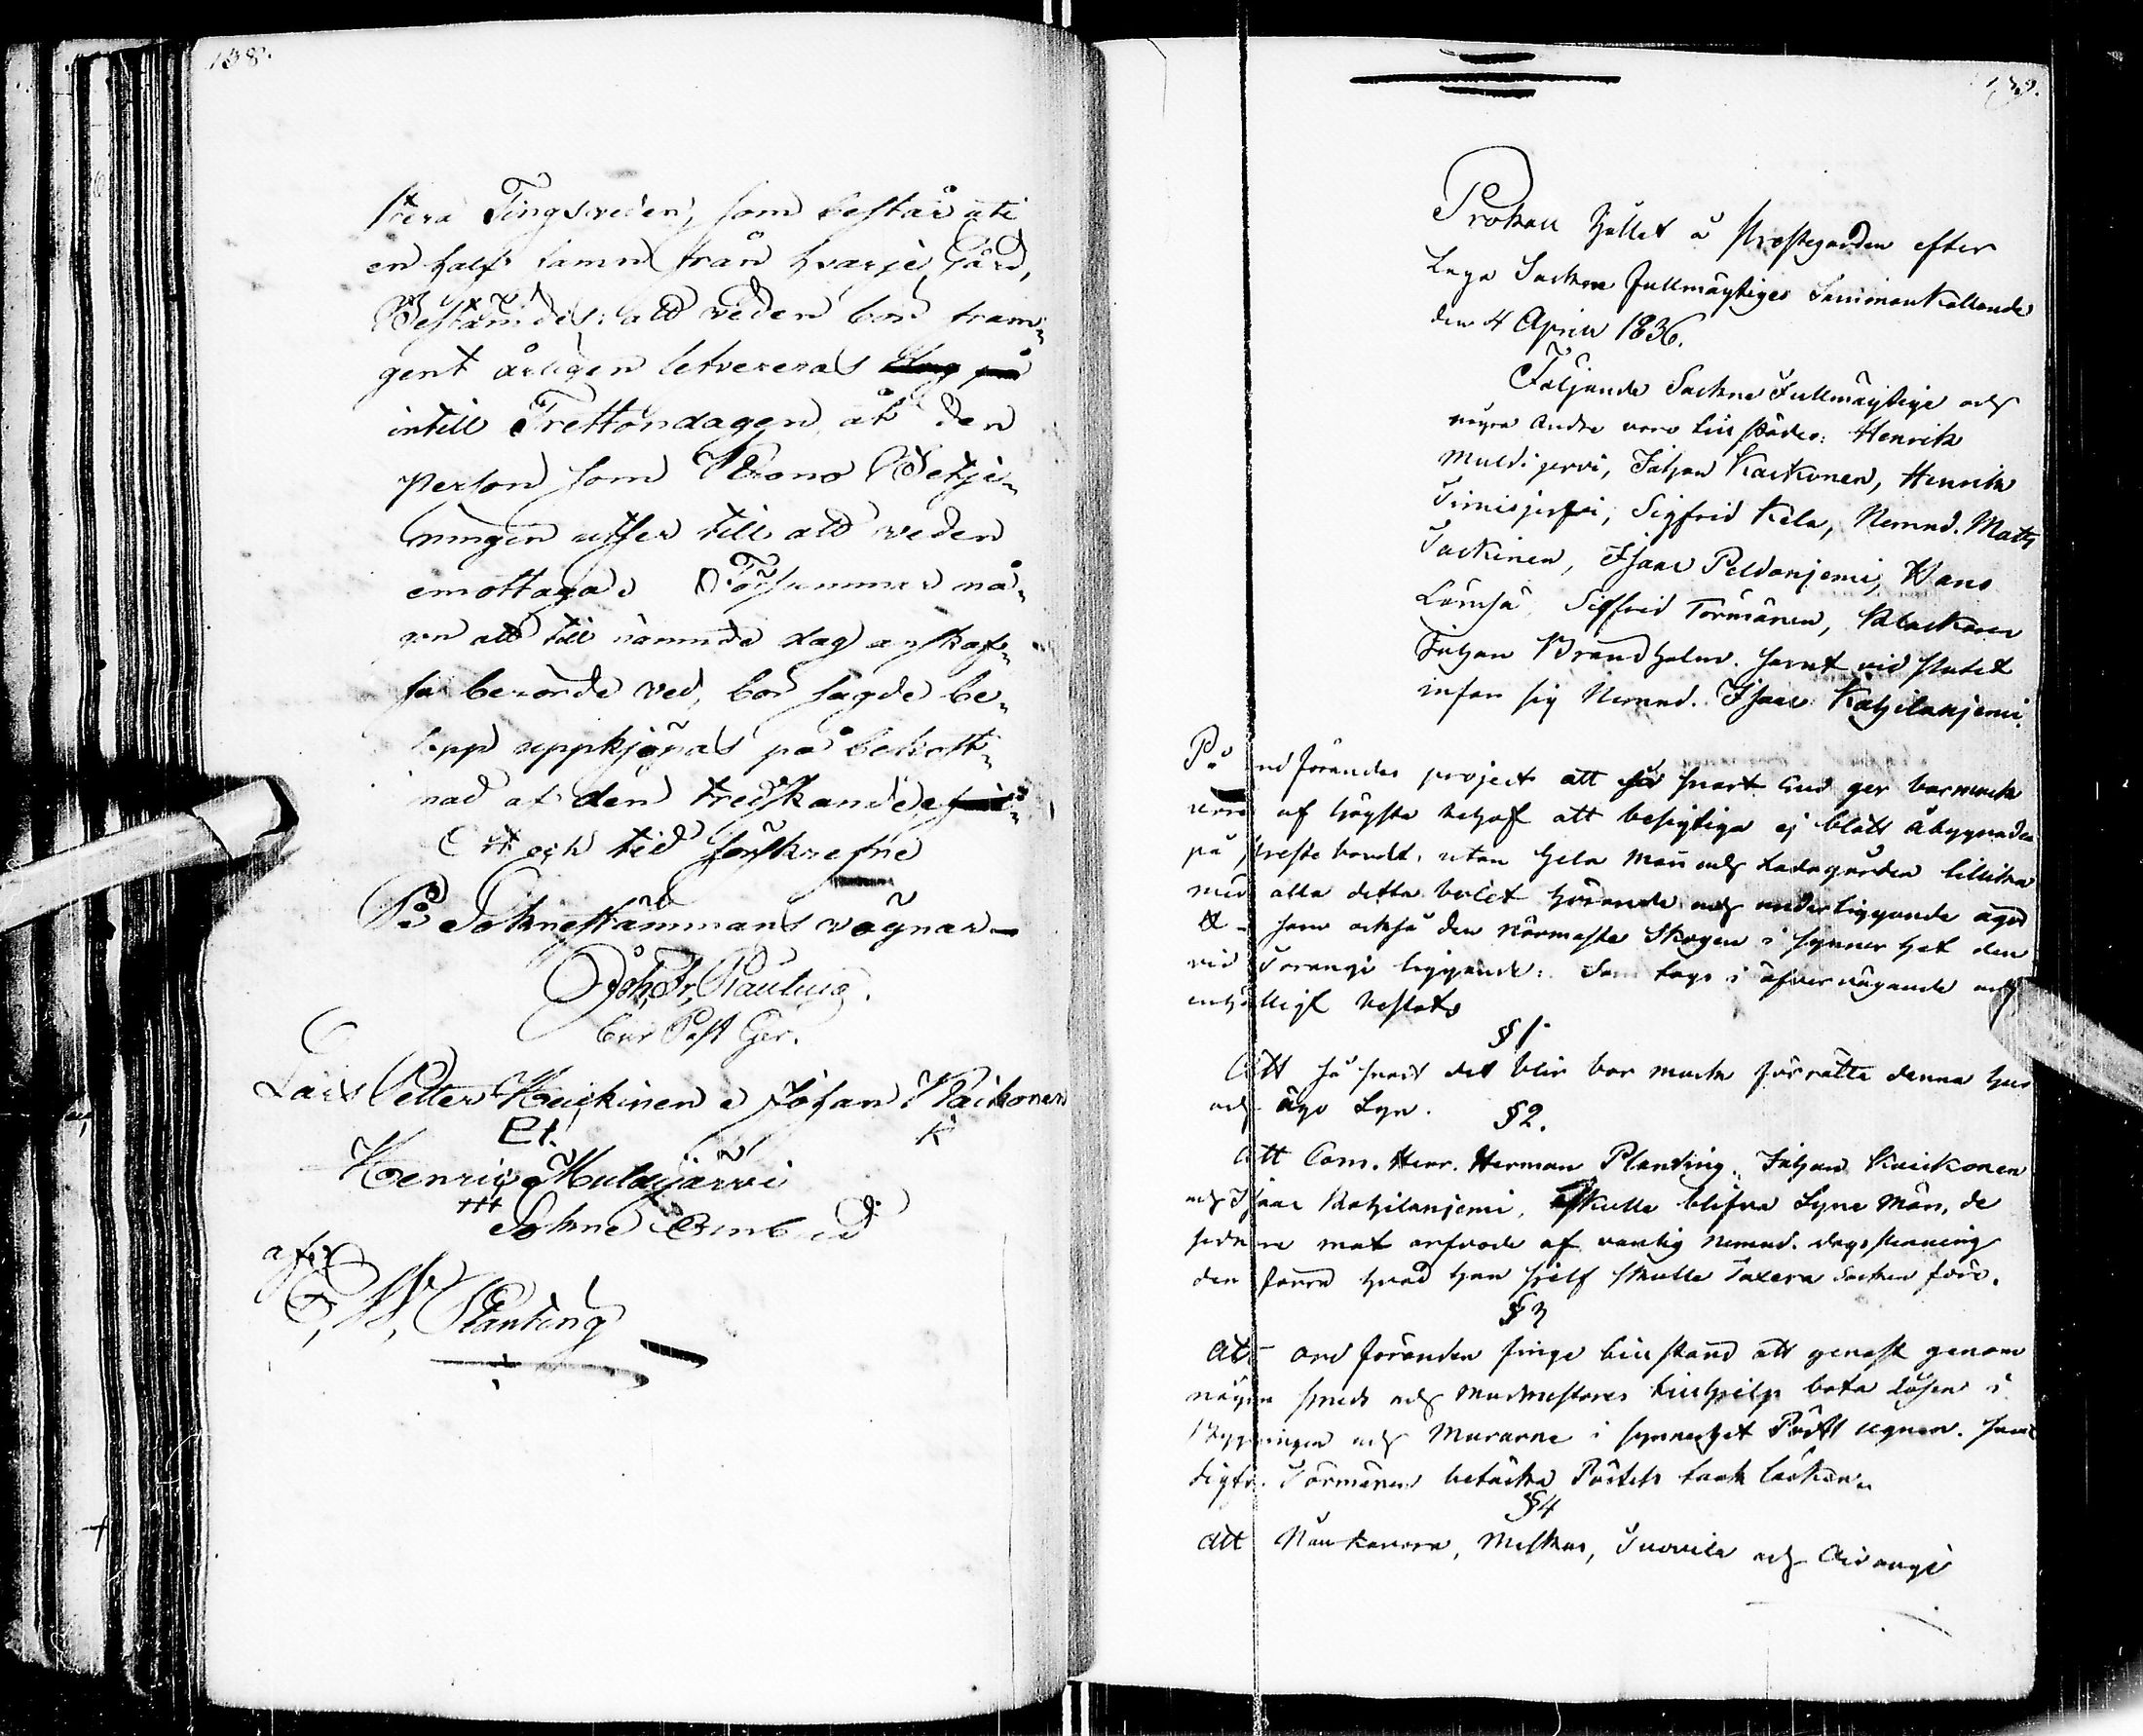 138.
Tingsveden, som består uti
en half famn från hvarje Gård,
Bestämdes: att veden bör fram„
gent årligen letvereras
intill Trettondagen åt den
person som Krono Betje„
ningen utser till att veden
emottaga. Försummar nå„
gon att till nämnde dag anskaf„
fa berörde ved, bör sagde be„
lopp uppkjöpas på bekost„
nad af den tredskande
Ort och tid förskrefne
På Soknestämmans vägnar
Joh. Fr.
Lars Petter Heickinen Johan Kaikonen
K
Henric Muldijärvi
+++
Sokne Ombud
P. W. Planting
139.
hållet å Prestegården efter
Laga Sockne Fullmägtiges Sammankallande
den 4 April 1836.
Följande Sockne Fullmägtige och
några Andre voro tillstädes: Henrik
Muldijervi, Johan Kaikonen, Henrik
Simisjerfvi, Sigfrid Kela, Nemnd. Mats
Isaac Peldoniemi, Hans
Sigfrid Törmänen, Klockaren
Johan Brandholm. Samt vid slutet
infan sig Nemnd. Isaac Katjilaniemi.
På ordförandes project att så snart Gud ger barmark
vore af högsta behof att besigtiga ej blott åbyggnaden
på Prestebordet, utan hela Man och Ladugården tillika
med alla detta bolet hörande och underliggande ägor
som också den närmaste Skogen i synnerhet den
vid liggande: Som togs i öfvervägande och
enhälligt beslöts
§ 1.
Att så snart det blir bar mark förrätta denna hus
och ägo Syn.
§ 2.
Att Com. Herr. Herman Planting, Johan Kaickonen
och Isaac Katjilaniemi, skulle blifva Syne Män, de
sednare mot arfvode af vanlig Nemnd. dagspenning
den förra hvad han sjelf skulle Taxera Socken före.
§ 3
Att ordföranden finge tillstånd att genast genom
någon smeds och murmestares tillhjelp bota låsen i
Byggningen och Murarne i synnerhet ugnen. Samt
Sigfr. Törmänen betäcka taak
§ 4
Att